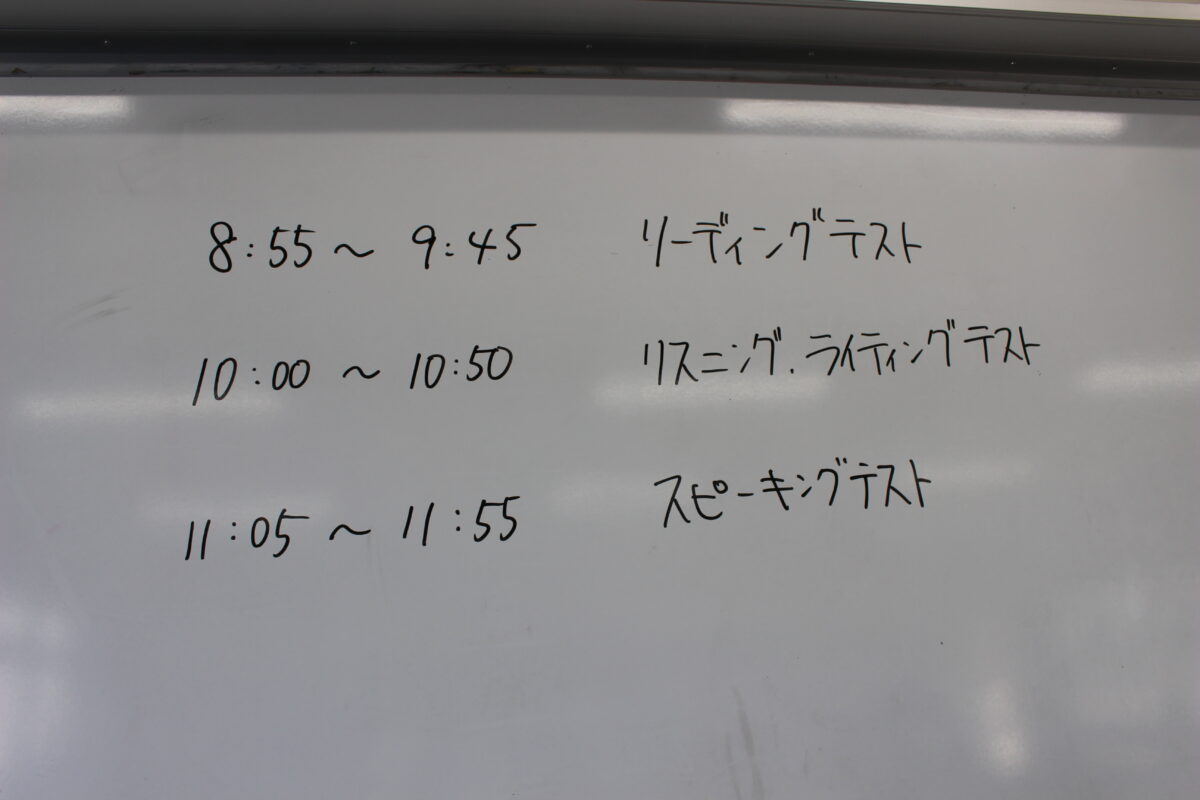 8:55～9:45 リーディングテスト
10:00～10:50 リスニング.ライティングテスト
11:05～11:55 スピーキングテスト